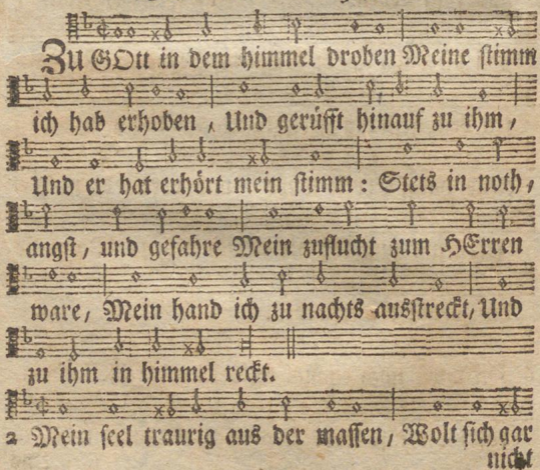 ZU GOtt in dem himmel droben Meine stimm
ich hab erhoben, Und gerüfft hinauf zu ihm,
Und er hat erhört mein stimm: Stets in noth,
angst, und gefahre Mein zuflucht zum HErren
ware, Mein hand ich zu nachts ausstreckt, Und
zu ihm in himmel reckt.
2 Mein seel traurig aus der massen, Wolt sich gar
nicht